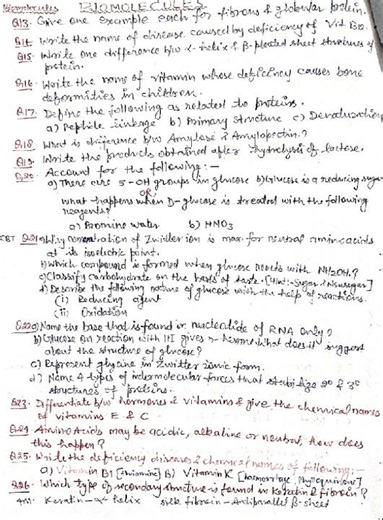 Biomolecules BIOMOLECULES
Q13. Give one example each for fibrous & globular protein.
Q14. Write the name of disease caused by deficiency of Vit B12.
Q15. Write one difference b/w α-helix & β-pleated sheet structures of
protein.
Q16. Write the name of vitamin whose deficiency causes bone
deformities in children.
Q17. Define the following as related to proteins.
a) Peptide linkage b) Primary structure c) Denaturation
Q18. What is difference b/w Amylose & Amylopectin?
Q19. Write the products obtained after hydrolysis of lactose.
Q20. Account for the following:-
a) There are 5-OH groups in glucose b) Glucose is a reducing sugar
OR
what happens when D-glucose is treated with the following
reagents?
a) Bromine water b) HNO3
Q21 a) Why concentration of Zwitter ion is max. for neutral amino acids
at its isoelectric point.
b) Which compound is formed when glucose reacts with NH2OH?
c) Classify carbohydrate on the basis of taste. [Hint:-Sugar & Nonsugar]
d) Describe the following nature of glucose with the help of reactions.
(i) Reducing agent
(ii) Oxidation
Q22 a) Name the base that is found in nucleotide of RNA only?
b) Glucose on reaction with HI gives n-hexane. What does it suggest
about the structure of glucose?
c) Represent glycine in Zwitter ionic form.
d) Name 4 types of intermolecular forces that stabilize 2° & 3°
structures of proteins.
Q23. Differentiate b/w hormones & vitamins & give the chemical names
of vitamins E & C.
Q24. Amino Acids may be acidic, alkaline or neutral, how does
this happen?
Q25. Write the deficiency diseases & chemical names of following:-
a) Vitamin B1 [Thiamine] B) Vitamin K [haemorrhage, Phylloquinone]
Q26. Which type of secondary structure is found in Keratin & fibroin?
Keratin - α-helix silk fibroin - Antiparallel β-sheet